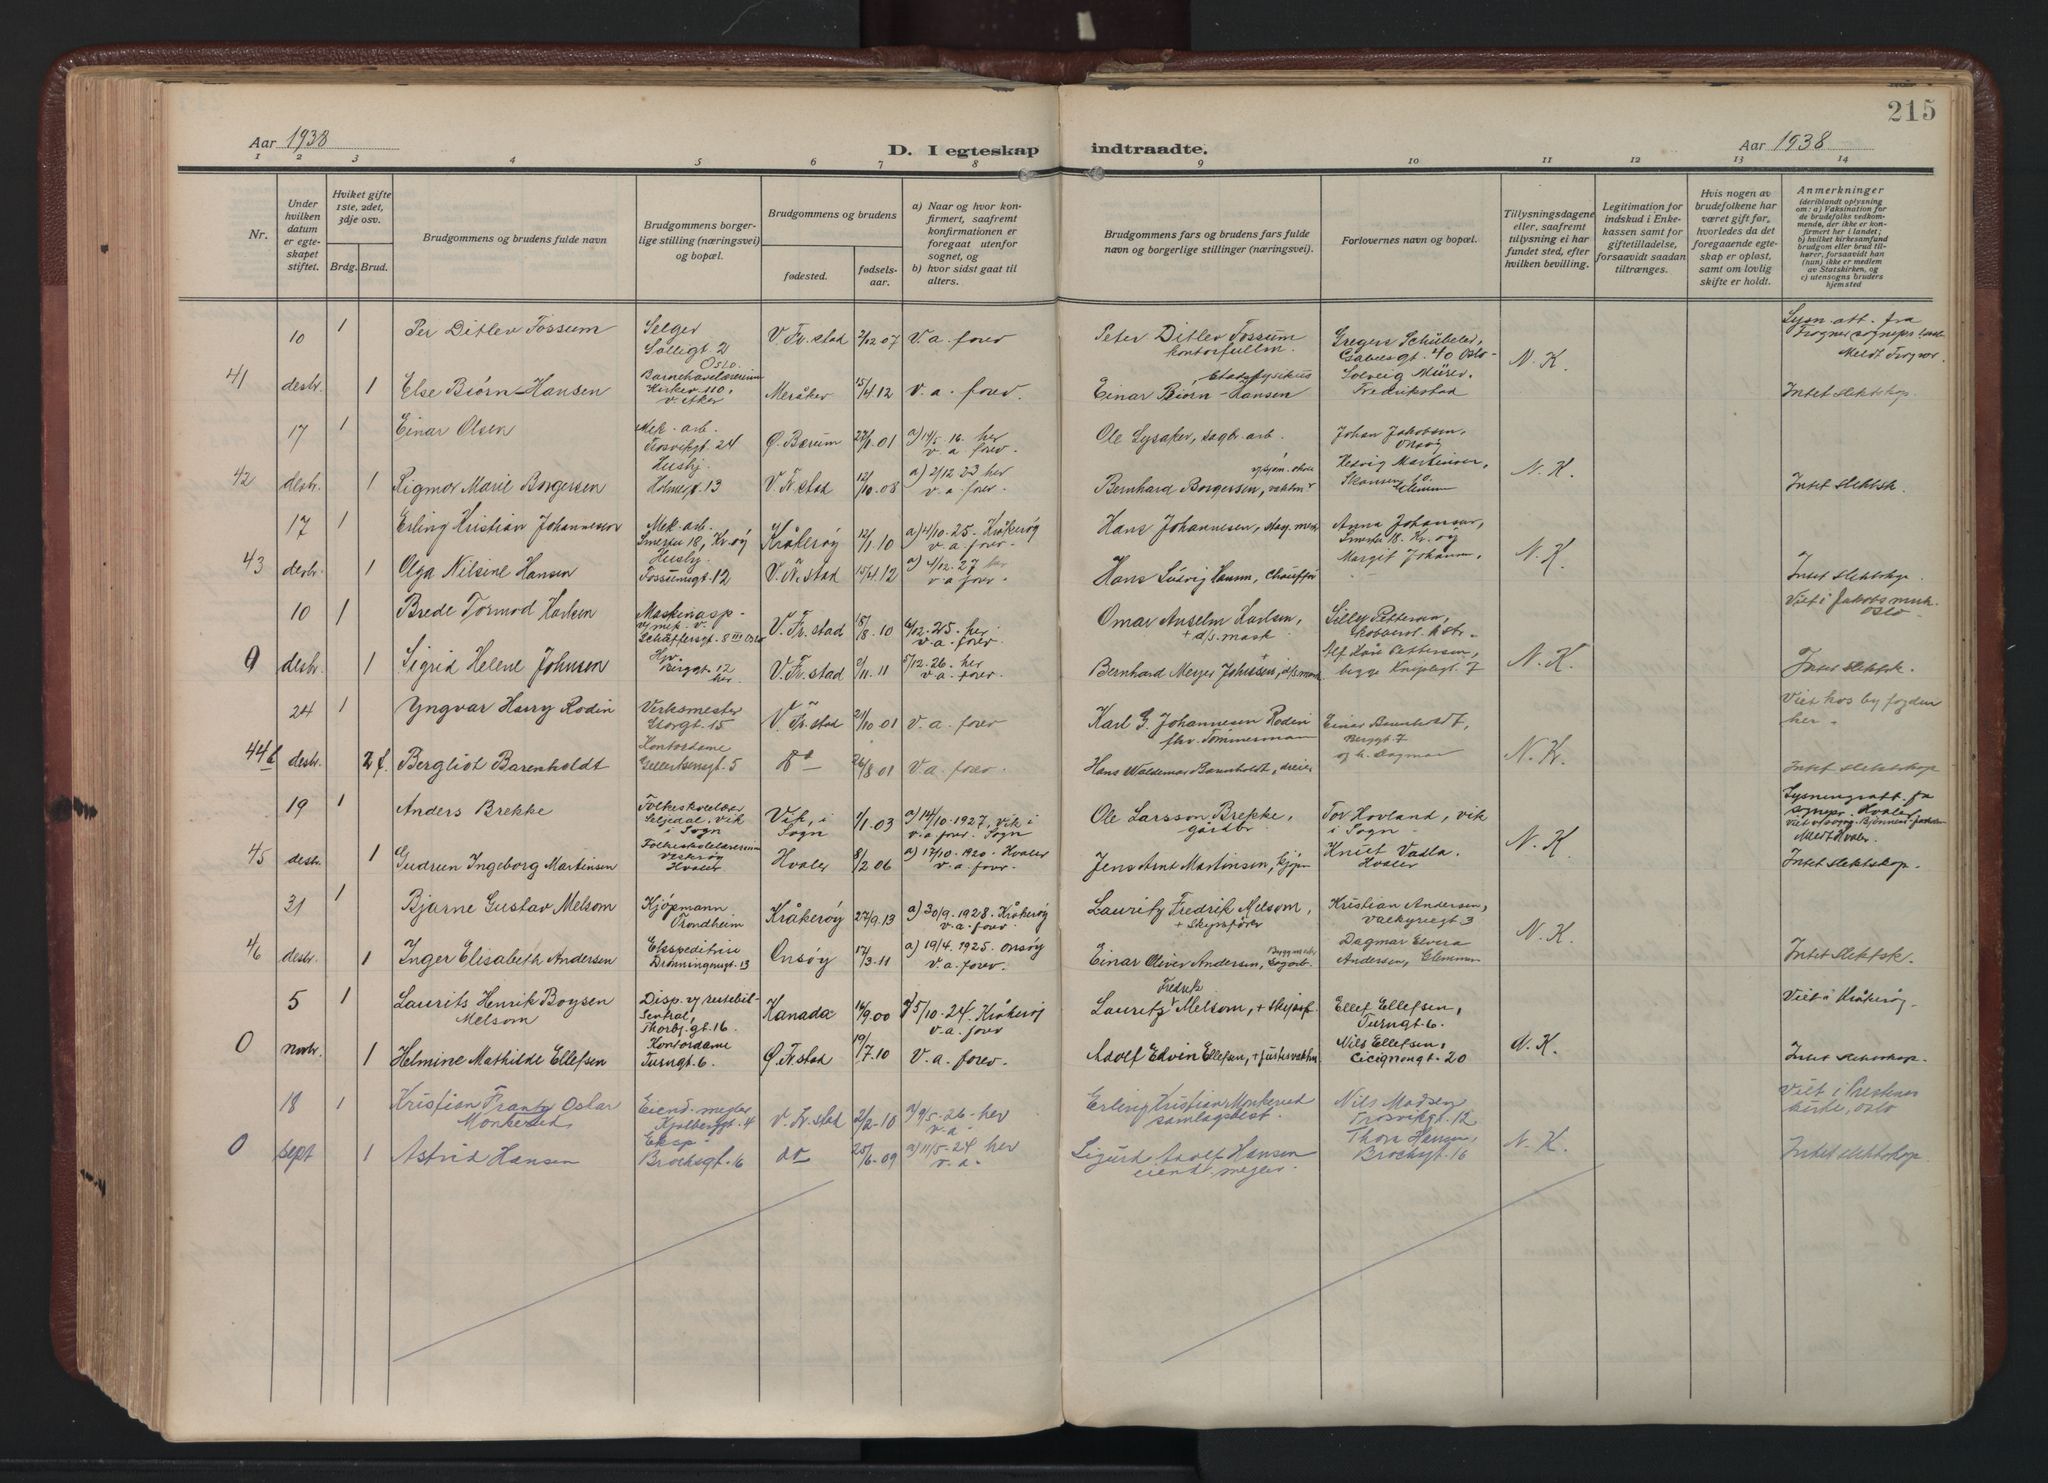 215
Aar 1938
D. I egteskap indtraadte.
Aar 1938
1 2 3 4 5 6 7 8 9 10 11 12 13 14
Nr.
Under hvilken datum er egteskapet stiftet.
Hviket gifte 1ste, 2det, 3dje osv.
Brdg. Brud.
Brudgommens og brudens fulde navn
Brudgommens borgerlige stilling (næringsvei) og bopæl.
Brudgommens og brudens
fødested.
fødselsaar.
a) Naar og hvor konfirmert, saafremt konfirmationen er foregaat utenfor sognet, og
b) hvor sidst gaat til alters.
Brudgommens fars og brudens fars fulde navn og borgerlige stillinger (næringsvei).
Forlovernes navn og bopæl.
Tillysningsdagene eller, saafremt tillysning ei har fundet sted, efter hvilken bevilling.
Legitimation for indskud i Enkekassen samt for giftetilladelse, forsaavidt saadan tiltrænges.
Hvis nogen av brudefolkene har været gift før, hvorledes da det foregaaende egteskap er opløst, samt om lovlig skifte er holdt.
Anmerkninger (deriblandt oplysning om: a) Vaksination for de brudefolks vedkommende, der ikke er konfirmert her i landet; b) hvilket kirkesamfund brudgom eller brud tilhører, forsaavidt han (hun) ikke er medlem av Statskirken, og c) utensogns bruders hjemsted
10 1 Per Ditlev Fossum Selger Solligt. 2 Oslo V. Fr.stad 2/12 07 V. a. forev Peter Ditlev Fossum kontorfullm. Gregers Schübeler, Gabelsgt. 40 Oslo N. K. Lysn. att. fra
41 desbr. 1 Else Biørn-Hansen Barnehavelærerinne Kirkev 110, V. Aker Meråker 15/4 12 v. a. forev. Einar Biørn-Hansen Stadsfysikus Solveig Fredrikstad Intet slektskap.
17 1 Einar Olsen Mek. arb. Trosvikgt. 24 Ø. Bærum 27/1 01 a) 14/5. 16. her v. a. forev Ole Lysaker, sagbr. arb. Johan Jakobsen, Onsøy
42 desbr. 1 Sigmor Marie Borgersen Husbj. Holmegt. 13 V. Fr.stad 12/10 08 a) 2/12 23 her v. a. forev. Bernhard Borgersen, Hedvig Martinsen, Glemmen N. K. Intet slektsk.
17 1 Erling Kristian Johannesen Mek. arb. 18, Kr.øy Kråkerøy 12/1 10 a) 4/10. 25. Kråkerøy v. a. forev. Hans Johannesen, Anna Johansen, 18. Kr. øy
43 desbr. 1 Olga Nilsine Hansen Husbj. Fossumsgt. 12 V. Fr.stad 15/4 12 a) 4/12. 27 her v. a. forev Hans Ludvig Hansen, Chauffør Margit Johansen, N. K. Intet slektskap.
10 1 Brede Tormod Karlsen Maskinasp. v/mek. v. Schäffersgt. 8 III Oslo V. Fr.stad 15/8 10 6/12. 25. her v. a. forev. Omar Anselm Karlsen, + d/s. mask Lilly Pettersen, Viet i Jakobs Oslo
9 desbr. 1 Sigrid Helene Johnsen Berggt. 12 her V. Fr.stad 9/11 11 5/12. 26. her v. a. forev. Bernhard Meyer Johnsen, Alf Pettersen, begge 7 N. K. Intet slektsk.
24 1 Yngvar Harry Rodin Verksmester Storgt. 15 V. Fr.stad 21/10 01 V. a. forev Karl G. Johannesen Rodin fhv. Tømmermann Einar Barenholdt, Berggt. 7 Viet hos byfogden her.
44b desbr. 2 f. Bergliot Barenholdt Kontordame 5 do 26/8 01 V. a. forev. Hans Waldemar Barenholdt, dreier og h. Dagmar N. K. Intet slektskap
19 1 Anders Brekke Folkeskolelærer Seljedal, Vik i Sogn Vik, i Sogn 1/1 03 a) 14/10. 1927, Vik i v. a. forev. Sogn Ole Larsson Brekke, gårdbr. Tor Hovland, Vik i Sogn Lysningsatt. fra sognepr. Hvaler
45 desbr. 1 Gudrun Ingeborg Martinsen Folkeskolelærerinne Vesterøy Hvaler Hvaler 8/2 06 a) 17/10. 1920. Hvaler v. a. forev. Jens Arnt Martinsen, Knut Vadla. Hvaler N. K. Meldt Hvaler. Intet slektskap.
31 1 Bjarne Gustav Melsom Kjøpmann Trondheim Kråkerøy 27/9. 13 a) 30/9. 1928. Kråkerøy v. a. forev. Lauritz Fredrik Melsom, + Skipsfører Kristian Andersen, Valkyriegt 3
46 desbr. 1 Inger Elisabeth Andersen Ekspeditrise Dronningensgt. 13 Onsøy 17/3. 11 a) 19/4. 1925. Onsøy v. a. forev. Einar Oliver Andersen, Dagmar Elvera Andersen, Glemmen N. K. Intet slektsk.
5 1 Laurits Henrik Boysen Melsom Disp. v/ rutebilsentral, Thorbj.gt. 16 Kanada 14/9. 00 a) 5/10. 24. Kråkerøy v. a. forev Lauritz Fredrik Melsom, + Skipsf. Ellef Ellefsen, Turngt. 6. Viet i Kråkerøy.
0 novbr. 1 Helmine Mathilde Ellefsen Kontordame Turngt. 6. Ø. Fr.stad 19/7. 10 V. a. forev. Adolf Edvin Ellefsen, + Nils Ellefsen, Cicignongt. 20 N. K. Intet slektskap.
18 1 Kristian Frantz Oskar Monkerud Eiend. megler Kjølberggt. 4 V. Fr.stad 2/2-10 a) 9/5. 26- her v. a. Erling Kristian Monkerud samlagsbest. Nils Madsen Trosvikgt. 12 Viet i kirke, Oslo
0 sept 1 Astrid Hansen Eksp. Brochsgt. 16 do 25/6-09 a) 11/5-24 her v. a. Sigurd Adolf Hansen eiend. megler. Thora Hansen, Brochsgt. 16 N. K. Intet slektskap.